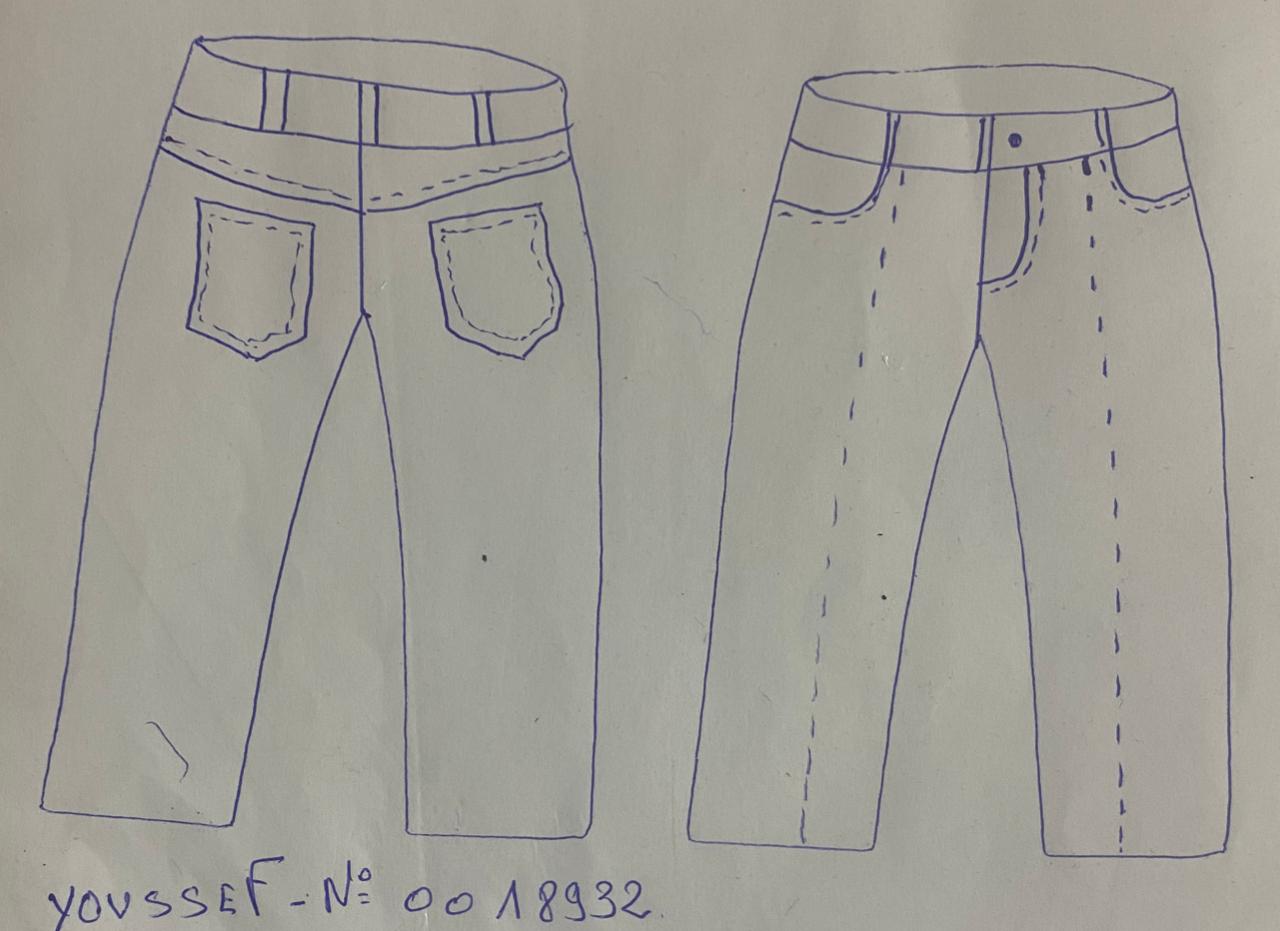 YOUSSEF - N° 0018932.